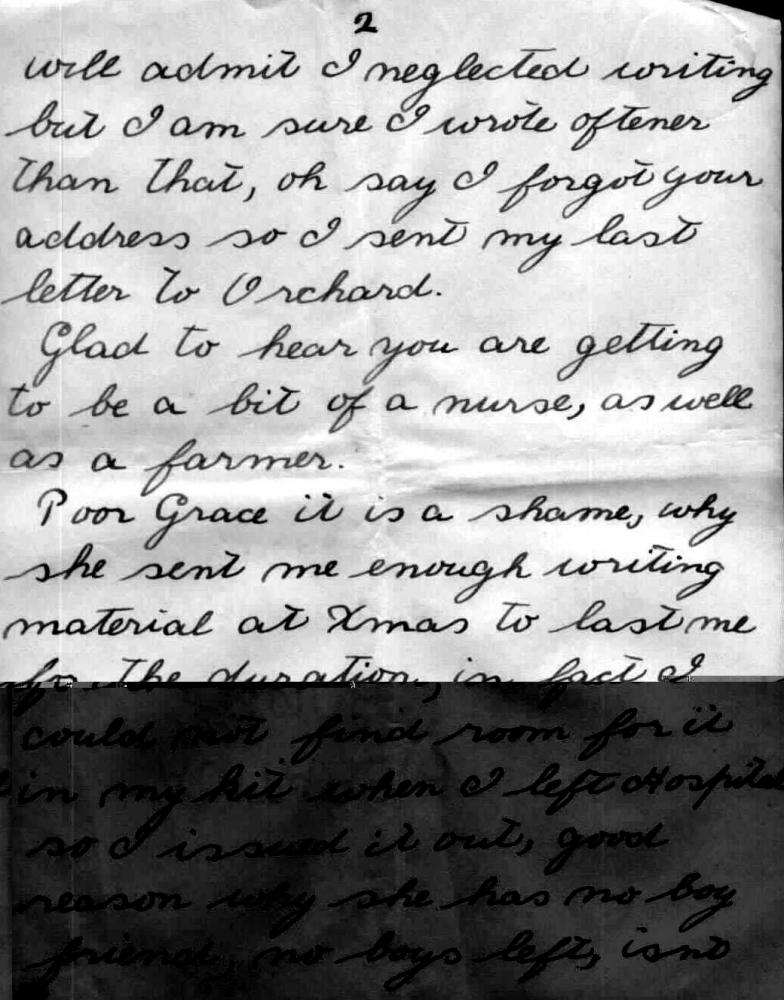 2
will admit I neglected writing
but I am sure I wrote oftener
than that, oh say I forgot your
address so I sent my last
letter to Orchard.
Glad to hear you are getting
to be a bit of a nurse, as well
as a farmer.
Poor Grace it is a shame, why
she sent me enough writing
material at Xmas to last me
for the duration, in fact I
could not find room for it
in my kit when I left Hospital
so I issued it out, good
reason why she has no boy
friend, no boys left, isnt